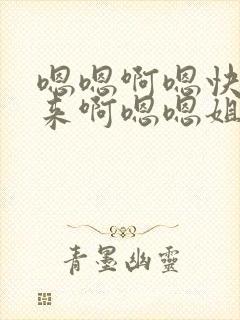 嗯嗯啊嗯快
来啊嗯嗯姐
青墨幽靈